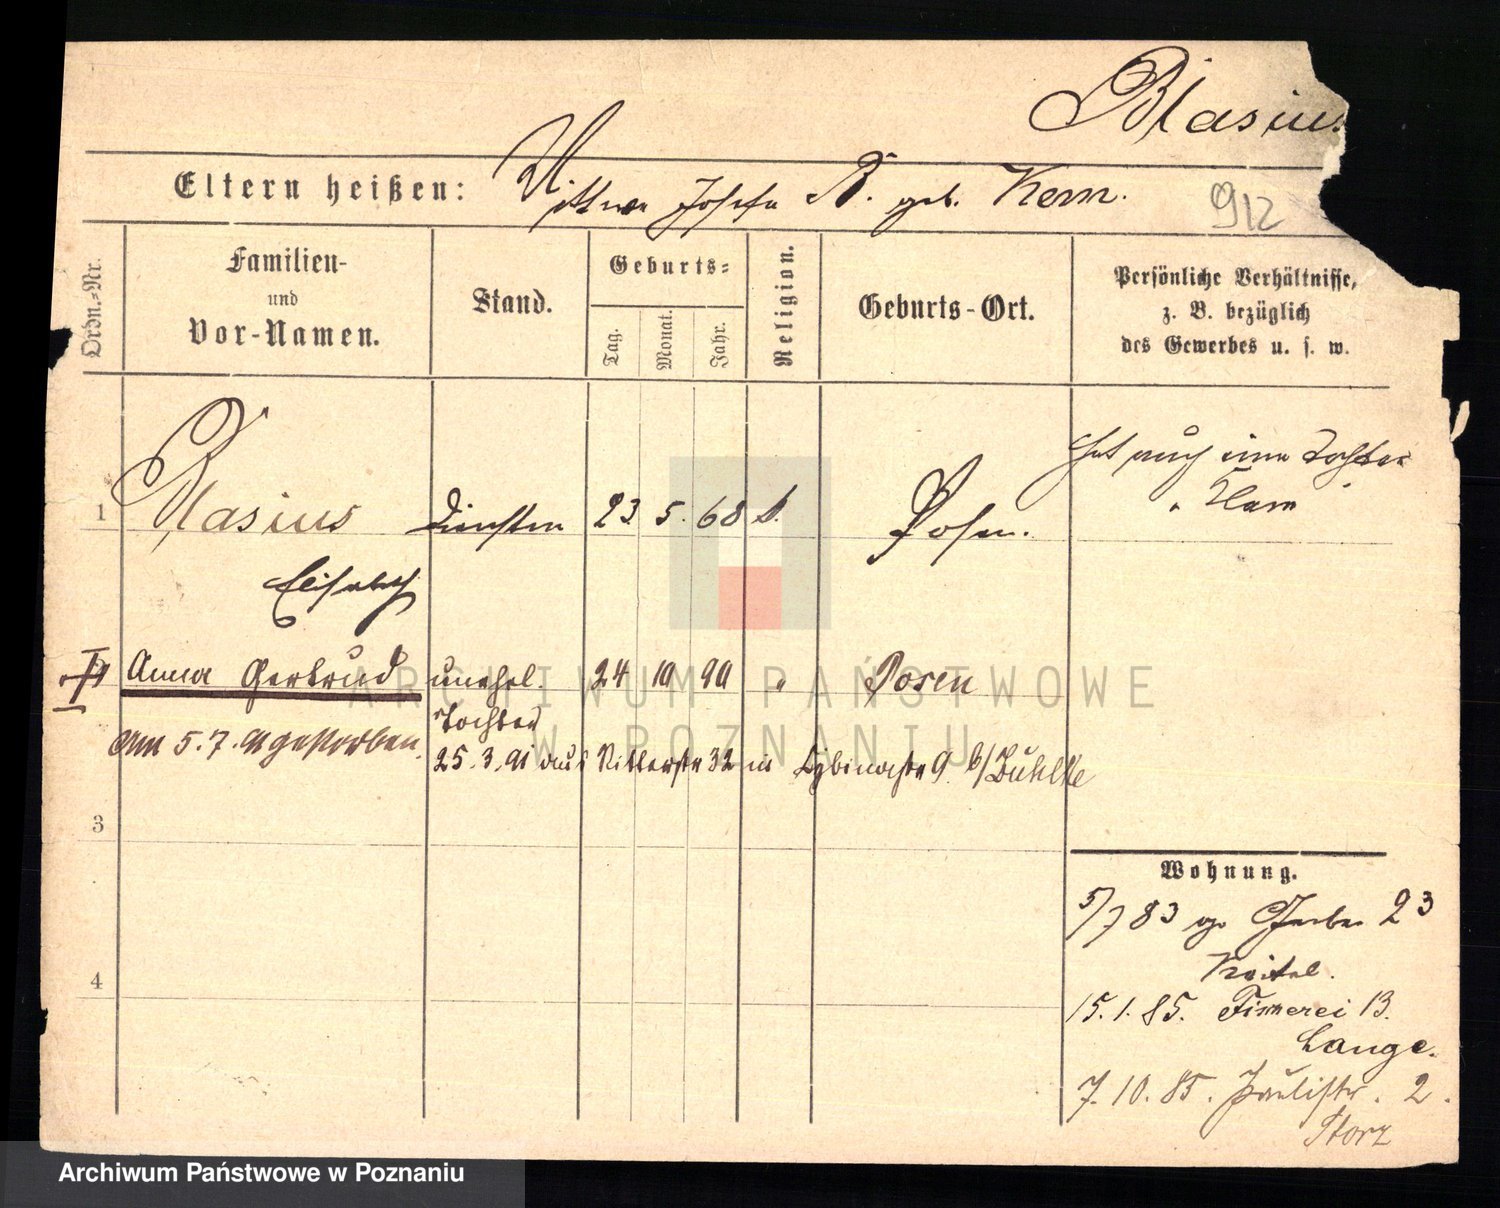 Blasius
Eltern heißen: Wittwe Josefa B. geb. Kern.
912
Ordn.-Nr.
Familien-
und
Vor-Namen.
Stand.
Geburts-
Tag.
Monat.
Jahr.
Religion.
Geburts-Ort.
Persönliche Verhältnisse,
z. B. bezüglich
des Gewerbes u. s. w.
hat auch eine Tochter
1 Blasius 23. 5. 68 Posen.
Elisabeth
Anna Gertrud unehel. 24 10 90 " Posen
Tochter
Am 5.7.91 gestorben.
25.3.91 aus Ritterstr 32 in 9 b/
3
4
Wohnung.
5/7 83 gr Gerber 23
15.1.85. 13.
Lange.
7.10.85. Paulistr. 2.
Storz
ARCHIWUM PAŃSTWOWE
W POZNANIU
Archiwum Państwowe w Poznaniu